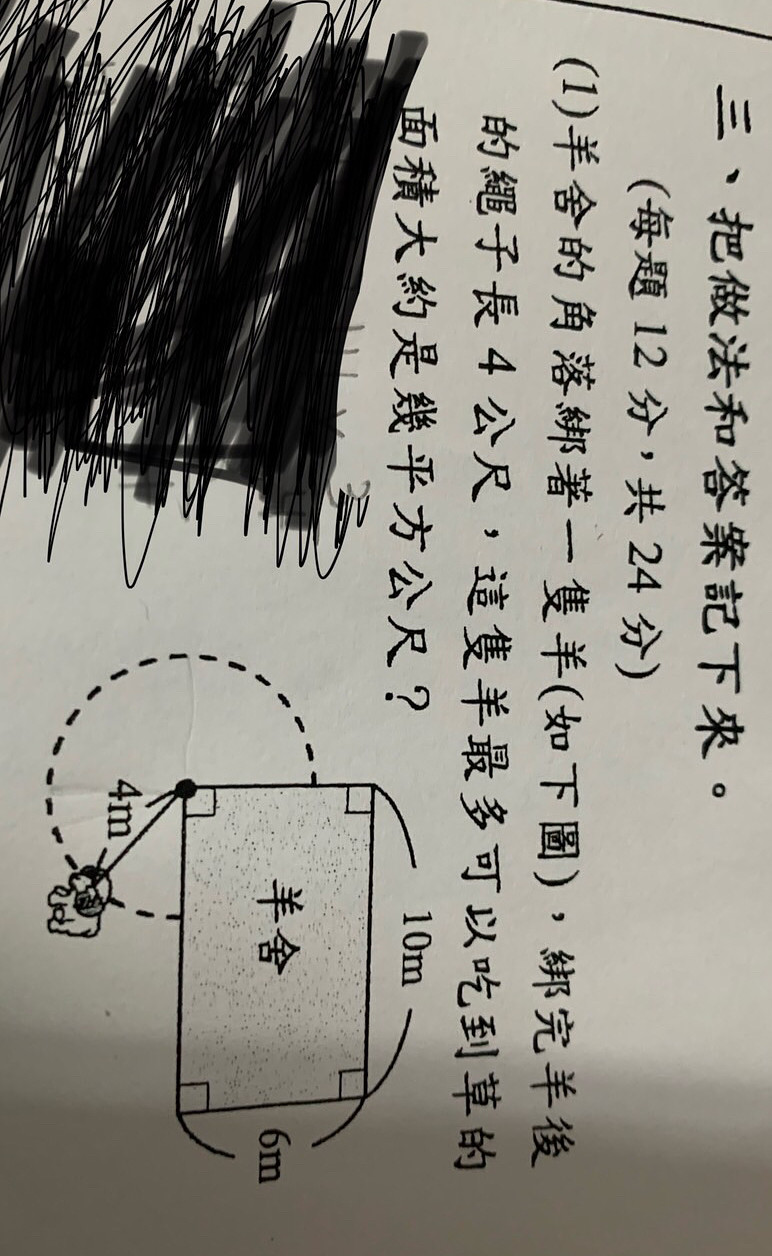 三、把做法和答案記下來。
(每題12分，共24分)
(1)羊舍的角落綁著一隻羊(如下圖)，綁完羊後
的繩子長4公尺，這隻羊最多可以吃到草的
面積大約是幾平方公尺？
10m
羊舍
6m
4m